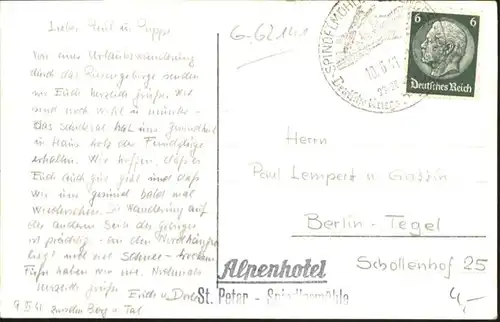 Lieber Paul u. Puppe
Von einer Urlaubswanderung
durch das Riesengebirge senden
wir Euch herzliche Grüße. Wir
sind noch wohl u. munter.
Das Schicksal hat uns zumindest
in Haus trotz der
erhalten. Wir hoffen, daß es
Euch auch gut geht und daß
wir uns gesund bald mal
wiedersehen. Die Wanderung auf
der anderen Seite des Gebirges
ist prächtig - an den Nordhängen
liegt noch viel Schnee -
Füße haben wir nie. Nochmals
herzliche Grüße Erich u. Dora
9. VI. 41 zwischen Berg u. Tal
6.6.2141
SPINDELMÜHLE
10.6.41
6 6
Deutsches Reich
Herrn
Paul Lempert u. Gattin
Berlin-Tegel
Schollenhof 25
Alpenhotel
St. Peter - Spindlermühle
4,-